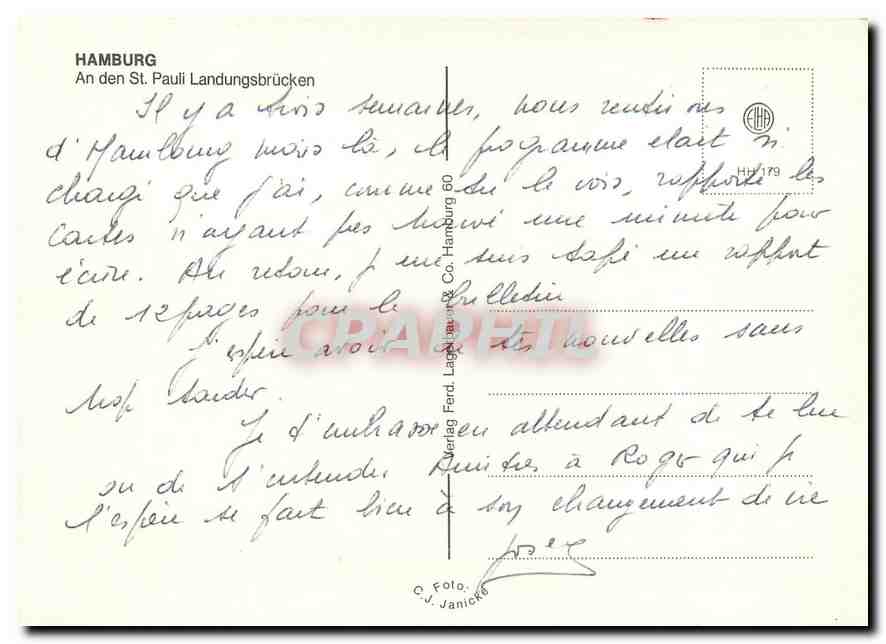 HAMBURG
An den St. Pauli Landungsbrücken
EHA
HH 179
Il y a trois semaines, nous rentrions
d'Hambourg mais là, le programme était si
chargé que j'ai, comme tu le vois, rapporté les
cartes n'ayant pas trouvé une minute pour
écrire. Au retour, je me suis tapé un rapport
de 12 pages pour le bulletin
J'espère avoir de tes nouvelles sans
trop tarder.
Je t'embrasse en attendant de te lire
ou de t'entendre Amitiés à Roger qui je
l'espère se fait bien à son changement de vie
Verlag Ferd. Lagerbauer & Co. Hamburg 60
CPAPHIL
Foto:
C.J. Janicke